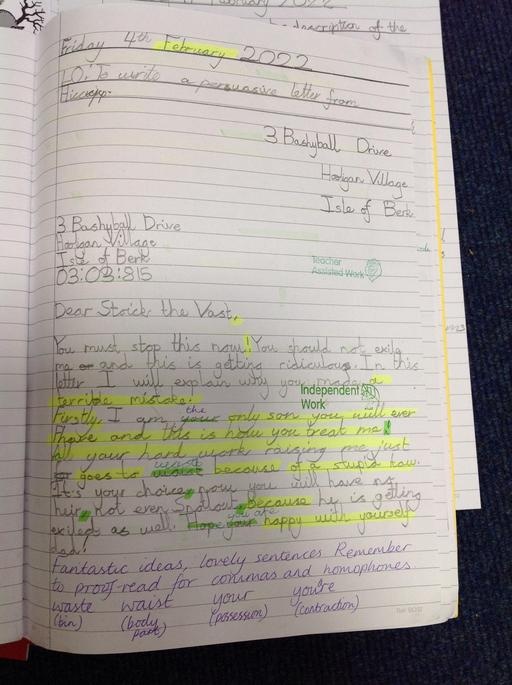 description of the
Friday 4th February 2022
LO: To write a persuasive letter from
Hiccup.
3 Bashyball Drive
Hooligan Village
Isle of Berk
3 Bashyball Drive
Hooligan Village
Isle of Berk
03:03:815
Teacher
Assisted Work
Dear Stoick the Vast,
You must stop this now! You should not exile
me or and this is getting ridiculous. In this
letter I will explain why you made a
terrible mistake.
Independent
Work
Firstly, I am your the only son you will ever
have and this is how you treat me!
All your hard work raising me just
goes to waist waste because of a stupid law.
It's your choice, now you will have no
heir, not even Snotlout, because he is getting
exiled as well. Hope your you are happy with yourself
dad!
Fantastic ideas, lovely sentences Remember
to proof-read for commas and homophones
waste waist your you're
(bin) (body part) (possession) (contraction)